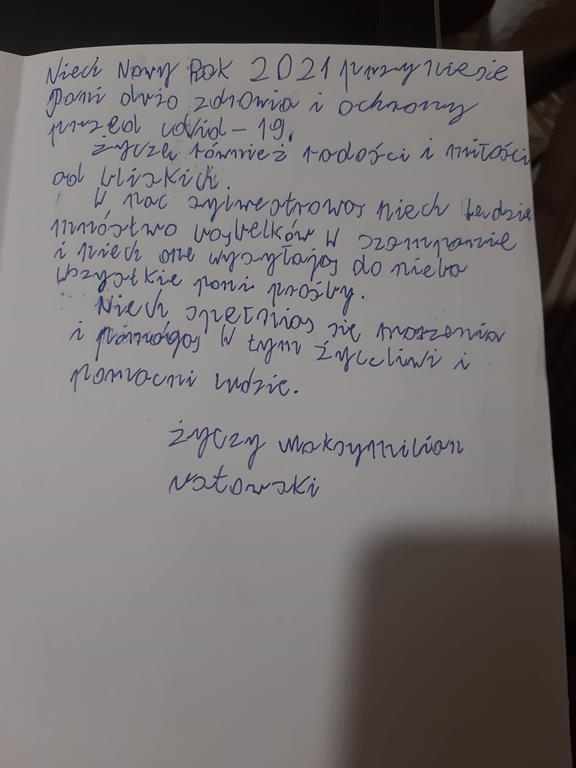 Niech Nowy Rok 2021 przyniesie
Pani dużo zdrowia i ochrony
przed covid-19.
Życzę również radości i miłości
od bliskich.
W noc sylwestrową niech będzie
mnóstwo bąbelków w szampanie
i niech one wysyłają do nieba
wszystkie pani prośby.
Niech spełnią się marzenia
i pomogą w tym życzliwi i
pomocni ludzie.
życzy Maksymilian